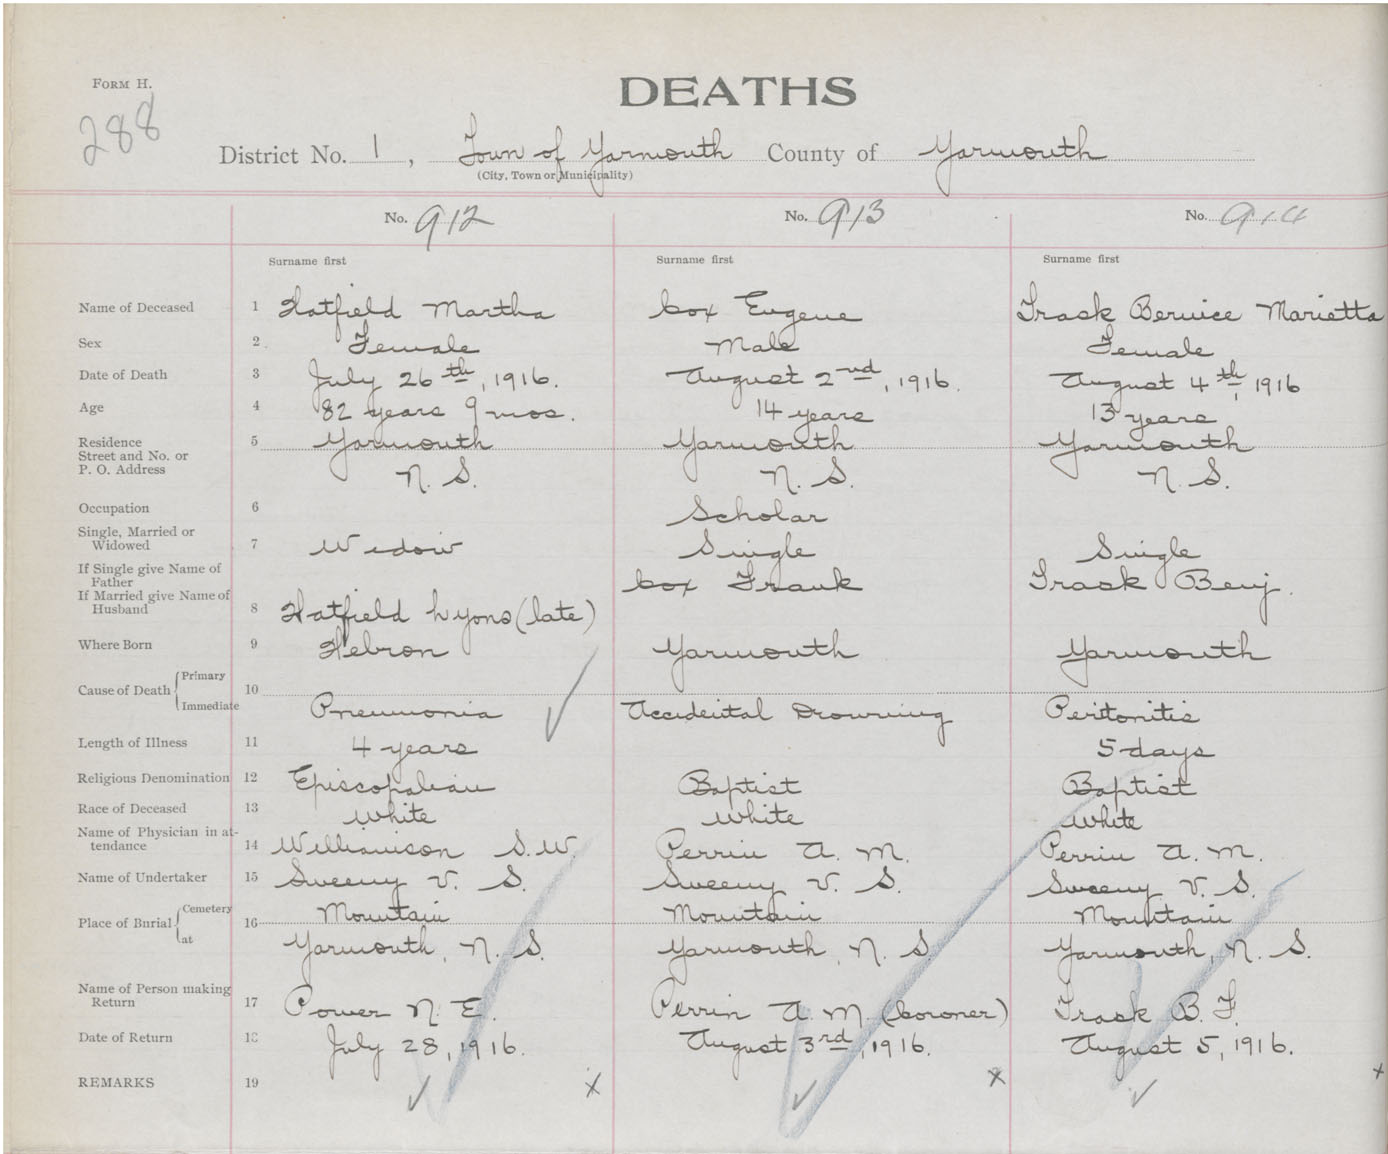 FORM H.
DEATHS
288
District No. 1, Town of Yarmouth County of Yarmouth
(City, Town or Municipality)
No. 912 No. 913 No. 914
Surname first Surname first Surname first
Name of Deceased 1 Hatfield Martha Cox Eugene Trask Bernice Marietta
Sex 2 Female Male Female
Date of Death 3 July 26th, 1916. August 2nd, 1916. August 4th, 1916
Age 4 82 years 9 mos. 14 years 13 years
Residence 5 Yarmouth Yarmouth Yarmouth
Street and No. or
P. O. Address N. S. N. S. N. S.
Occupation 6 Scholar
Single, Married or
Widowed 7 Widow Single Single
If Single give Name of
Father Cox Frank Trask Benj.
If Married give Name of
Husband 8 Hatfield Lyons (late)
Where Born 9 Hebron Yarmouth Yarmouth
Primary
Cause of Death 10
Immediate Pneumonia Accidental Drowning Peritonitis
Length of Illness 11 4 years 5 days
Religious Denomination 12 Episcopalian Baptist Baptist
Race of Deceased 13 White White White
Name of Physician in at-
tendance 14 Williamson S. W. Perrin A. M. Perrin A. M.
Name of Undertaker 15 Sweeny V. S. Sweeny V. S. Sweeny V. S.
Cemetery Mountain Mountain Mountain
Place of Burial 16
at Yarmouth, N. S. Yarmouth, N. S. Yarmouth, N. S.
Name of Person making
Return 17 Power N. E. Perrin A. M. (Coroner) Trask B. F.
Date of Return 18 July 28, 1916. August 3rd, 1916. August 5, 1916.
REMARKS 19 x x x